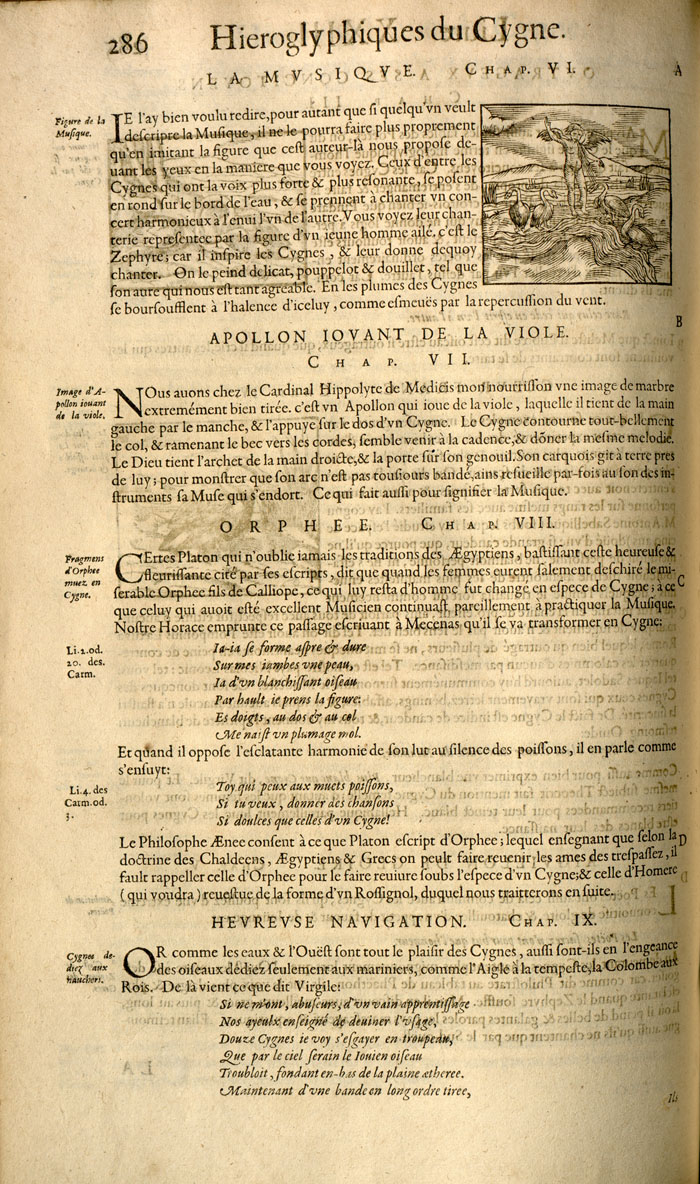 286 Hieroglyphiques du Cygne.
LA MVSIQVE. CHAP. VI. A
Figure de la
Musique.
IE l'ay bien voulu redire, pour autant que si quelqu'vn veult
descripre la Musique, il ne le pourra faire plus proprement
qu'en imitant la figure que cest auteur-là nous propose de-
uant les yeux en la maniere que vous voyez. Ceux d'entre les
Cygnes qui ont la voix plus forte & plus resonante, se posent
en rond sur le bord de l'eau, & se prennent à chanter vn con-
cert harmonieux à l'enui l'vn de l'autre. Vous voyez leur chan-
terie representee par la figure d'vn ieune homme ailé. c'est le
Zephyre; car il inspire les Cygnes, & leur donne dequoy
chanter. On le peind delicat, ppuppelot & douillet, tel que
son aure qui nous est tant agreable. En les plumes des Cygnes
se boursoufflent à l'halence d'iceluy, comme esmeuës par la repercussion du vent.
B
APOLLON IOVANT DE LA VIOLE.
CHAP. VII.
Image d'A-
pollon iouant
de la viole.
NOus auons chez le Cardinal Hippolyte de Medicis mon nourrisson vne image de marbre
extremément bien tirée. c'est vn Apollon qui ioue de la viole, laquelle il tient de la main
gauche par le manche, & l'appuye sur le dos d'vn Cygne. Le Cygne contourne tout-bellement
le col, & ramenant le bec vers les cordes, semble venir à la cadence, & dõner la mesme melodie.
Le Dieu tient l'archet de la main droicte, & la porte sur son genouil. Son carquois git à terre pres
de luy; pour monstrer que son arc n'est pas tousiours bandé, ains resueille par-fois au son des in-
struments sa Muse qui s'endort. Ce qui fait aussi pour signifier la Musique.
ORPHEE. CHAP. VIII.
Fragmens
d'Orphee
muez en
Cygne.
CErtes Platon qui n'oublie iamais les traditions des Ægyptiens, bastissant ceste heureuse &
fleurissante cité par ses escripts, dit que quand les femmes eurent salement deschiré le mi-
serable Orphee fils de Calliope, ce qui luy resta d'homme fut changé en espece de Cygne; à ce
C
que celuy qui auoit esté excellent Musicien continuast pareillement à practiquer la Musique.
Nostre Horace emprunte ce passage escriuant à Mecenas qu'il se va transformer en Cygne:
Li. 2. od.
20. des.
Carm.
Ia-ia se forme aspre & dure
Sur mes iambes vne peau,
Ia d'vn blanchissant oiseau
Par hault ie prens la figure:
Es doigts, au dos & au col
Me naist vn plumage mol.
Et quand il oppose l'esclatante harmonie de son lut au silence des poissons, il en parle comme
s'ensuyt:
Li. 4. des
Carm. od.
3.
Toy qui peux aux muets poissons,
Si tu veux, donner des chansons
Si doulces que celles d'vn Cygne!
Le Philosophe Ænee consent à ce que Platon escript d'Orphee; lequel enseignant que selon la
D
doctrine des Chaldeens, Ægyptiens & Grecs on peult faire reuenir les ames des trespassez, il
fault rappeller celle d'Orphee pour le faire reuiure soubs l'espece d'vn Cygne; & celle d'Homere
(qui voudra) reuestue de la forme d'vn Rossignol, duquel nous traitterons en suite.
HEVREVSE NAVIGATION. CHAP. IX.
Cygnes de-
diez aux
nauchers.
OR comme les eaux & l'Ouëst sont tout le plaisir des Cygnes, aussi sont-ils en l'engeance
des oiseaux dediez seulement aux mariniers, comme l'Aigle à la tempeste, la Colombe aux
Rois. De là vient ce que dit Virgile:
Si ne m'ont, abuseurs, d'vn vain apprentissage
Nos ayeulx enseigné de deuiner l'vsage,
Douze Cygnes ie voy s'esgayer en troupeau,
Que par le ciel serain le Iouien oiseau
Troubloit, fondant en-bas de la plaine ætheree.
Maintenant d'vne bande en long ordre tiree,
Ils